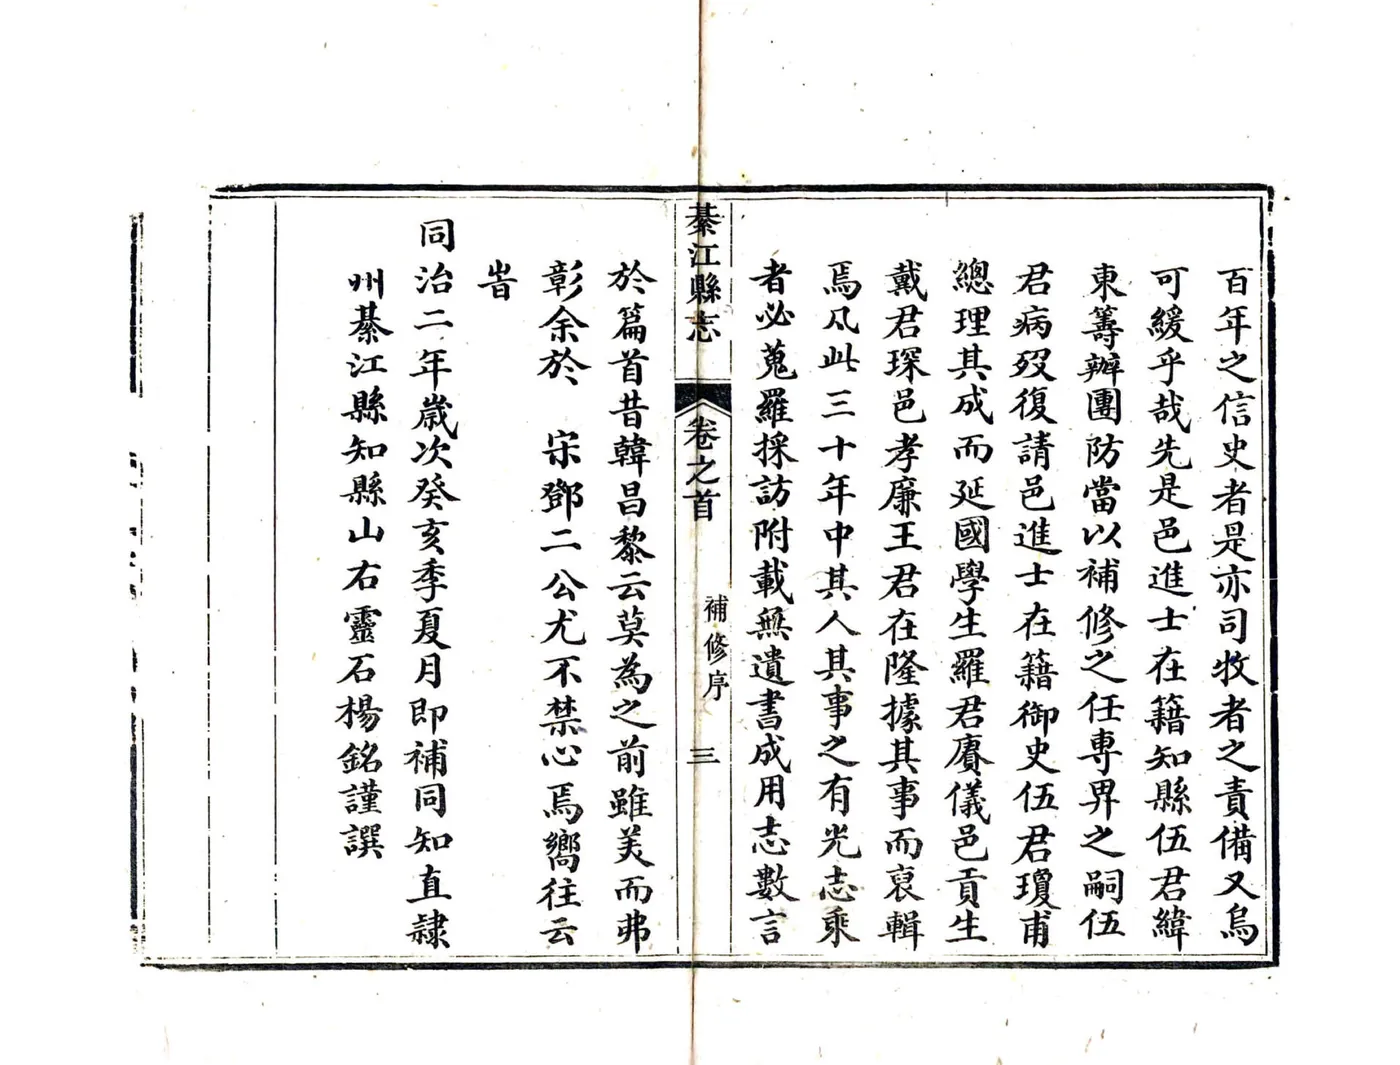 百年之信史者是亦司牧者之責備又烏
可緩乎哉先是邑進士在籍知縣伍君緯
東籌辦團防當以補修之任專畀之嗣伍
君病歿復請邑進士在籍御史伍君瓊甫
總理其成而延國學生羅君賡儀邑貢生
戴君琛邑孝廉王君在隆據其事而裒輯
焉凡此三十年中其人其事之有光志乘
者必蒐羅採訪附載無遺書成用志數言
綦江縣志
卷之首
補修序
三
於篇首昔韓昌黎云莫為之前雖美而弗
彰余於 宋鄧二公尤不禁心焉嚮往云
旹
同治二年歲次癸亥季夏月即補同知直隸
州綦江縣知縣山右靈石楊銘謹譔